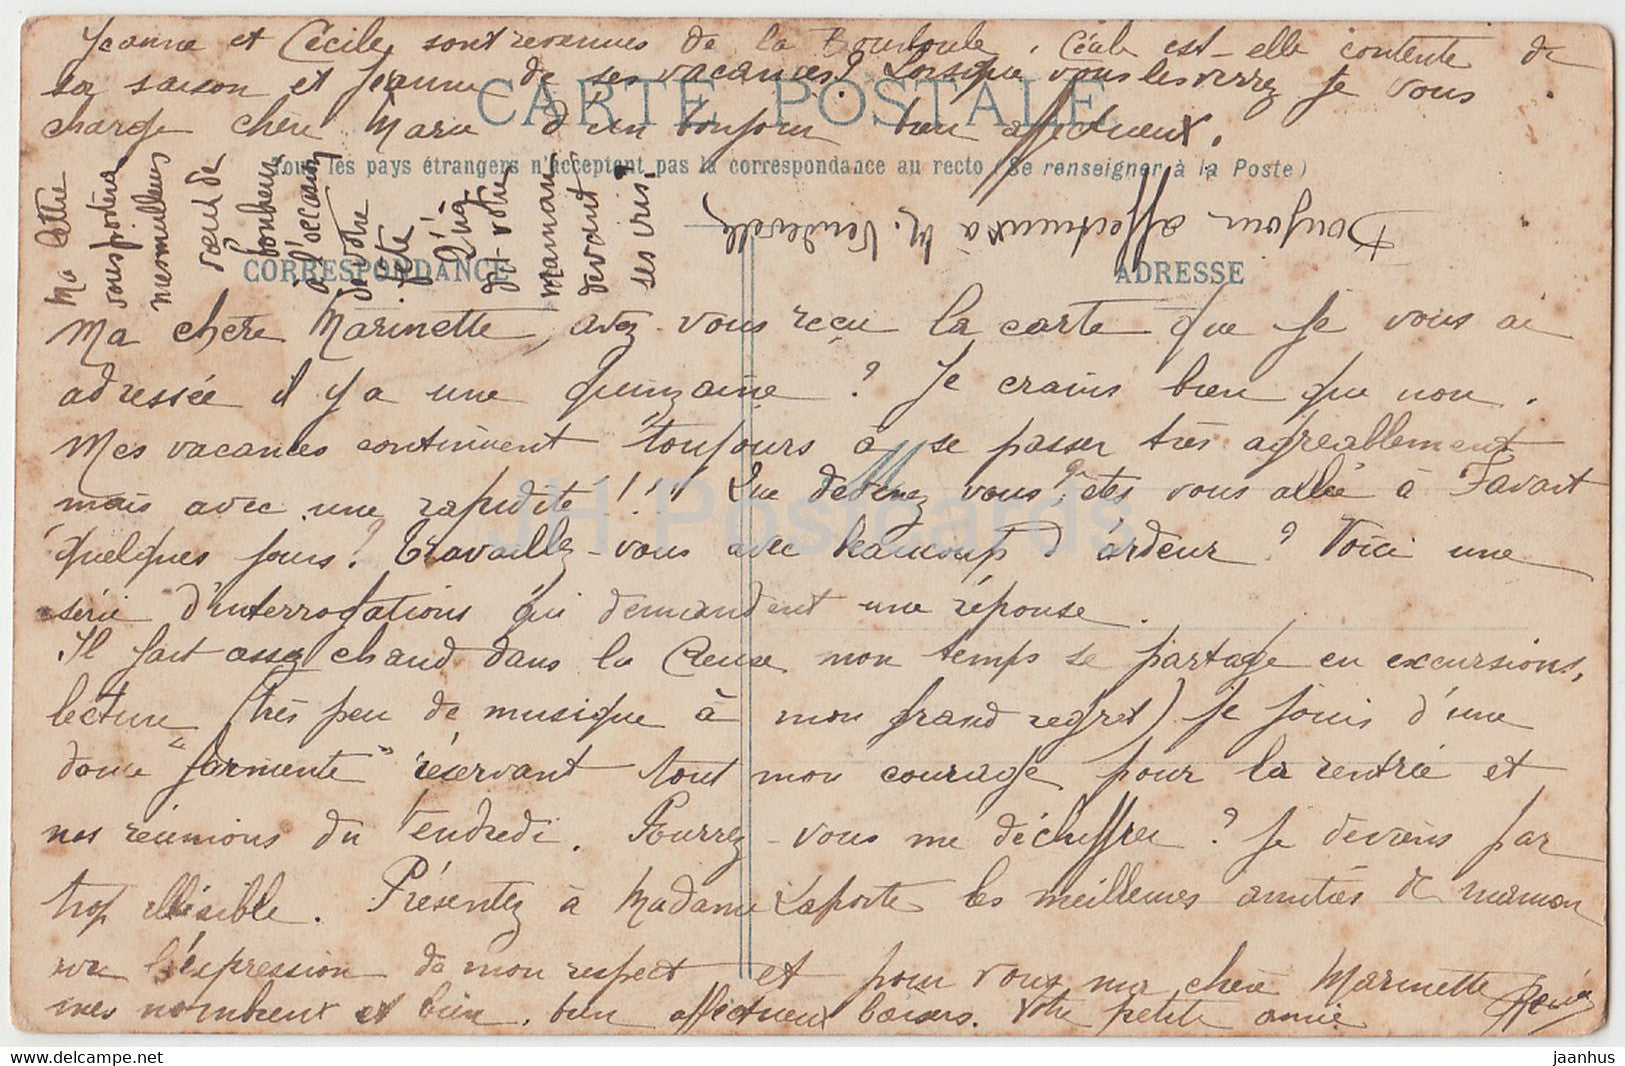 Jeanne et Cécile sont revenues de la Bourboule. Cécile est-elle contente de
sa saison et Jeanne de ses vacances? Lorsque vous les verrez je vous
charge chère Marie d'un bonjour bien affectueux.
CARTE POSTALE
Tous les pays étrangers n'acceptent pas la correspondance au recto (Se renseigner à la Poste)
Ma lettre
vous portera
mes meilleurs
vœux de
bonheur
à l'occasion
de votre
fête
dit votre
maman
devant
ses
Bonjour affectueux à M.
CORRESPONDANCE
ADRESSE
Ma chère Marinette, avez-vous reçu la carte que je vous ai
adressée il y a une quinzaine? Je crains bien que non.
Mes vacances continuent toujours à se passer très agréablement
mais avec une rapidité!!! Que devenez vous? êtes vous allée à Favart
quelques jours? Travaillez-vous avec beaucoup d'ardeur? Voici une
série d'interrogations qui demandent une réponse.
Il fait assez chaud dans la Creuse mon temps se partage en excursions,
lecture (très peu de musique à mon grand regret) je jouis d'une
douce "farniente" réservant tout mon courage pour la rentrée et
nos réunions du Vendredi. Pourrez-vous me déchiffrer? Je deviens par
trop illisible. Présentez à Madame Laporte les meilleures amitiés de maman
l'expression de mon respect et pour vous ma chère Marinette
mes nombreux et bien, bien affectueux baisers. Votre petite amie
Renée
JH Postcards
www.delcampe.net
jaanhus